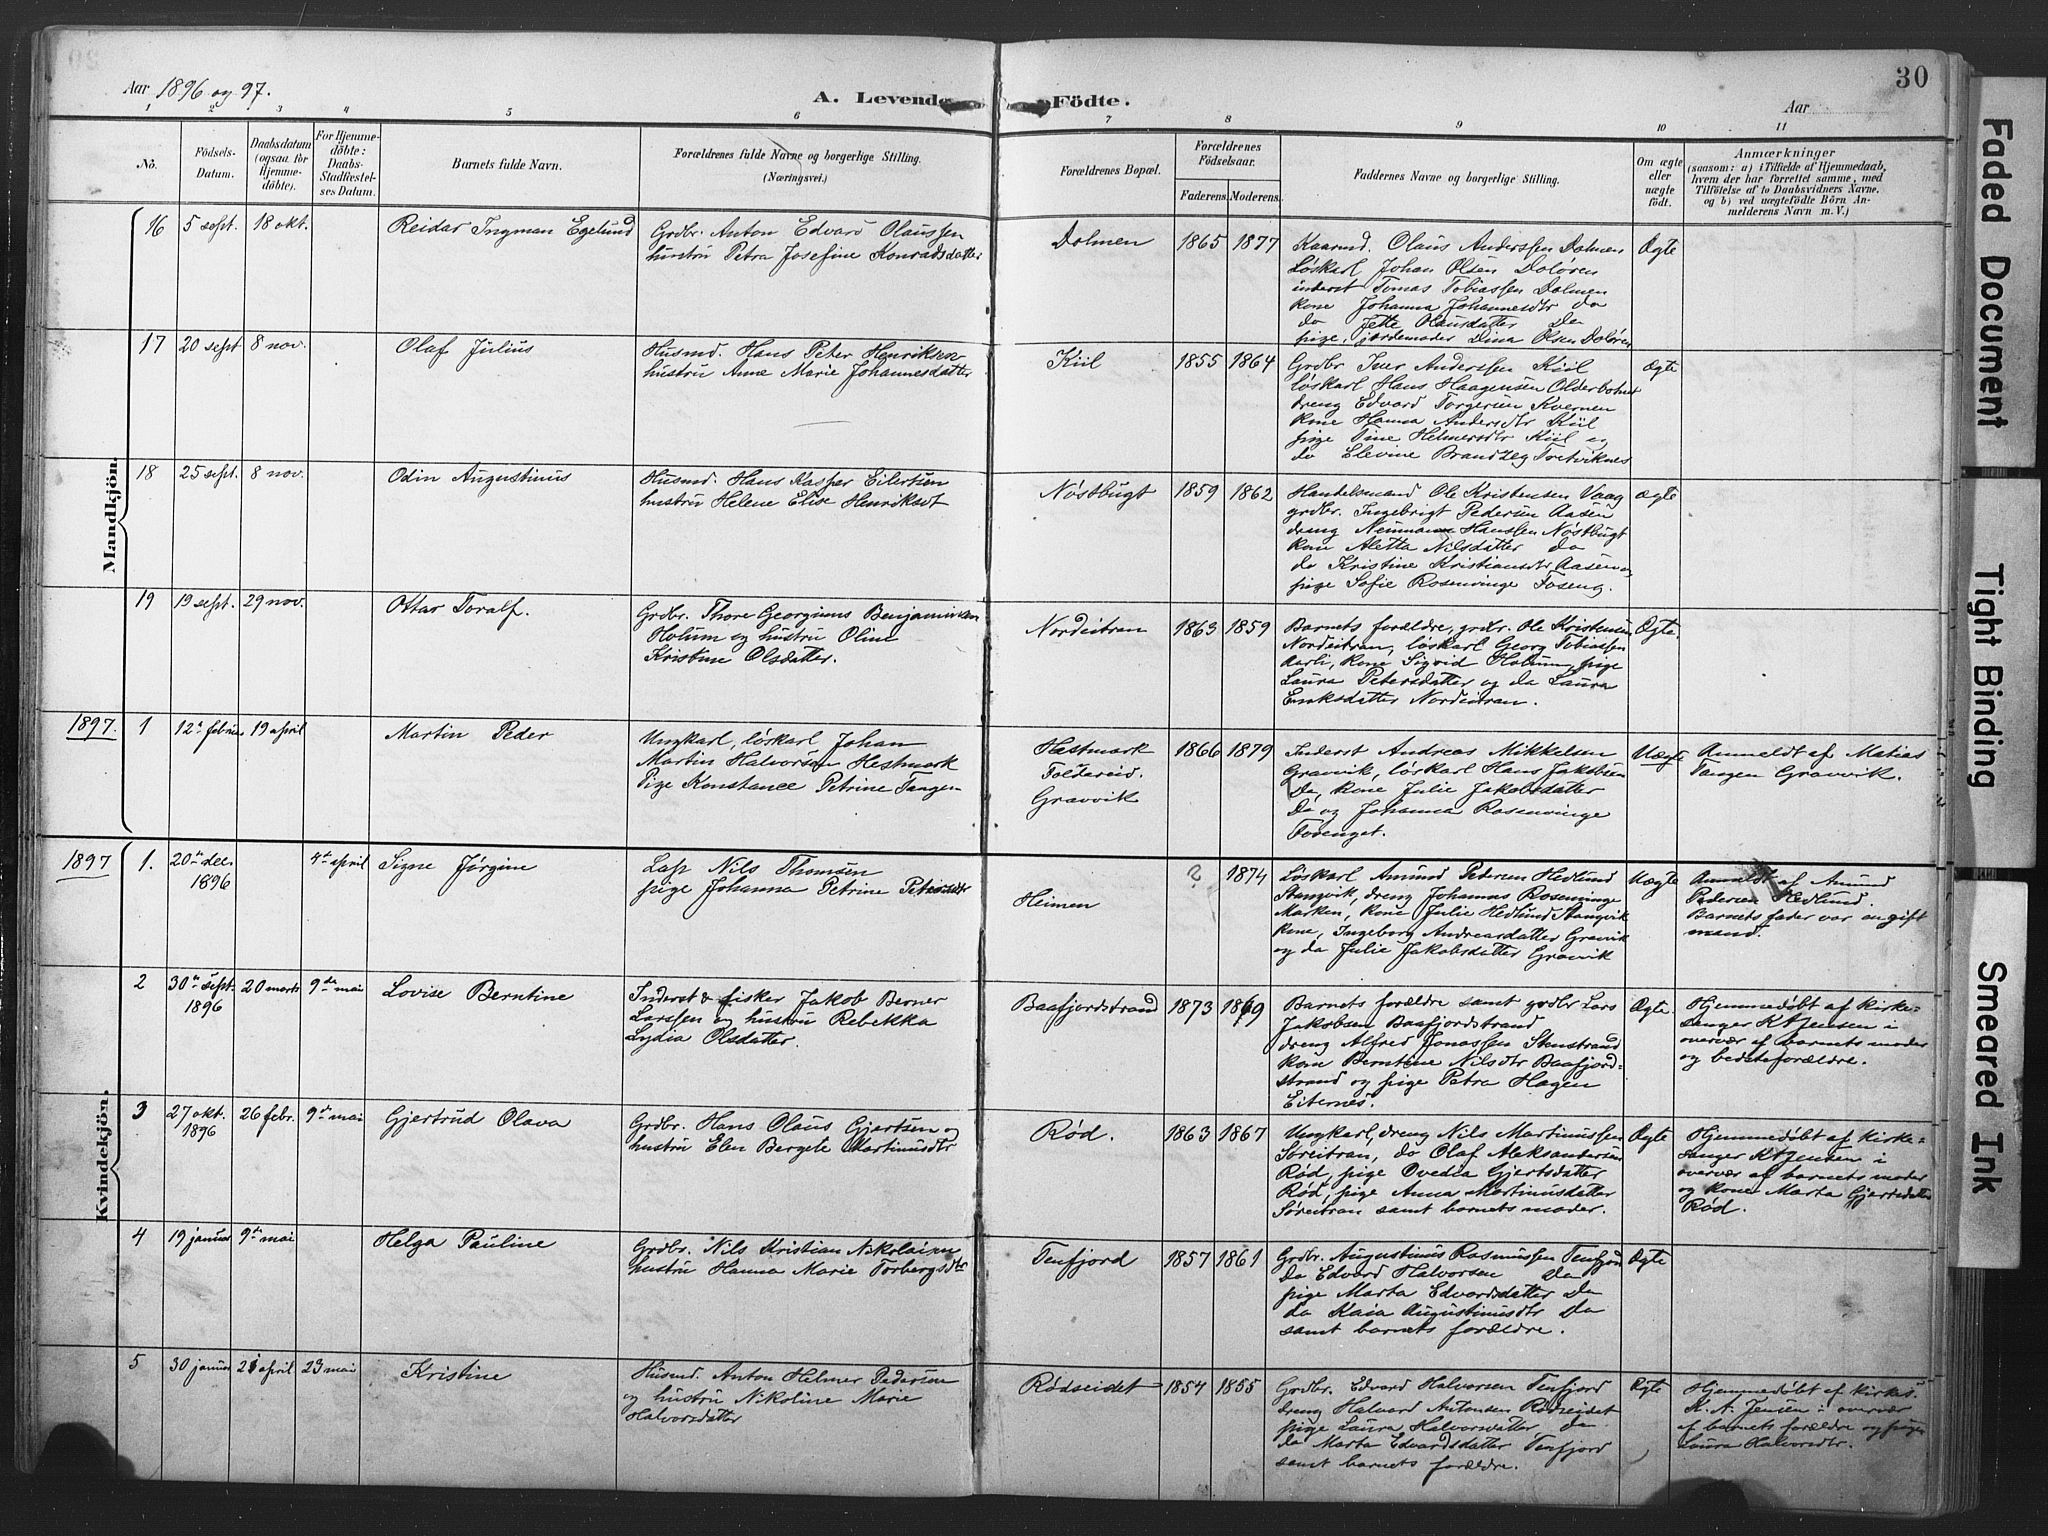 Aar 1896 og 97.
A. Levende Födte.
Aar
30
1 2 3 4 5 6 7 8 9 10 11
No.
Födsels-Datum.
Daabsdatum (ogsaa for Hjemme-döbte).
For Hjemme-döbte: Daabs-Stadfæstelses Datum.
Barnets fulde Navn.
Forældrenes fulde Navne og borgerlige Stilling.
(Næringsvei.)
Forældrenes Bopæl.
Forældrenes Födselsaar.
Faderens. Moderens.
Faddernes Navne og borgerlige Stilling.
Om ægte eller uægte födt.
Anmærkninger
(saasom: a) i Tilfælde af Hjemmedaab, hvem der har forrettet samme, med Tilföielse af to Daabsvidners Navne, og b) ved uægtefödte Börn Anmelderens Navn m. V.)
Mandkjön.
16 5 sept. 18 okt. Reidar Ingman Egelund
Grdbr. Anton Edvard Olaussen
hustru Petra Josefine Konradsdatter
Dolmen 1865 1877
Kaarmd. Olaus Anderssen Dolmen
Løskarl Johan Olsen Doløren
inderst Tomas Tobiassen Dolmen
kone Johanna Johannesdtr do
do Jette Olausdatter Do
pige, jordemoder Dina Olsen Doløren
Ægte
17 20 sept 8 nov. Olaf Julius
Husmd. Hans Peter Henriksen
hustru Anne Marie Johannesdatter
Kiil 1855 1864
Grdbr Iver Anderssen Kiil
løskarl Hans Haagensen Olderbotnet
dreng Edvard Torgersen Kvernen
kone Hanna Andersdtr Kiil
pige Tine Helmersdtr Kiil og
do Elevine Brandzeg Tretviknes
Ægte
18 25 sept. 8 nov. Odin Augustinus
Husmd. Hans Kaspar Eilertsen
hustru Helene Elise Henriksdt
Nøstbugt 1859 1862
Handelsmand Ole Kristensen Vaag
grdbr. Ingebrigt Pedersen Aasen
dreng Neumann Hanssen Nøstbugt
kone Aletta Nilsdatter do
do Kristine Kristiansdtr Aasen og
pige Sofie Rosenvinge Foseng.
Ægte
19 19 sept. 29 nov. Ottar Toralf.
Grdbr. Thore Georginus Benjaminsen
Holum og hustru Oline
Kristine Olsdatter.
Nordeitran 1863 1859
Barnets forældre, grdbr. Ole Kristensen
Nordeitran, løskarl Georg Tobiassen
Aarli, kone Sigrid Holum, pige
Laura Petersdatter og do Laura
Enoksdatter Nordeitran.
Ægte.
1897. 1 12te februar 19 april Martin Peder
Ungkarl, løskarl Johan
Martin Halvorsen Hestmork
Pige Konstance Petrine Tangen
Hæstmark
Foldereid.
Gravvik
1866 1879
Inderst Andreas Mikkelsen
Gravvik, løskarl Hans Jakobsen
Do, kone Julie Jakobsdatter
Do og Johanna Rosenvinge
Uægte
Anmeldt af Matias
Tangen Gravvik.
Kvindekjön.
1897 1. 20de dec. 1896 4de april Signe Jørgine
Lap Nils Thomsen
pige Johanna Petrine
Heimen ? 1874
Løskarl Amund Pedersen Hedlund
Stangvik, dreng Johannes Rosenvinge
Marken, kone Julie Hedlund Stangvik
kone, Ingeborg Andreasdatter Gravvik
og do Julie Jakobsdatter Gravvik
Uægte
Anmeldt af Amund
Pedersen Hedlund.
Barnets fader var en gift
mand.
2 30te sept. 1896 20 marts 9de mai Lovise Berntine
Inderst & fisker Jakob Berner
Larssen og hustru Rebekka
Lydia Olsdatter.
Baafjordstrand 1873 1869
Barnets forældre samt grdbr Lars
Jakobsen Baafjordstrand
dreng Alfred Jonassen Stenstrand
kone Berntine Nilsdtr Baafjord-
strand og pige Petra Hagen
Eiternes.
Ægte.
Hjemmedøbt af kirke-
sanger K A Jensen i
overvær af barnets moder
og bedsteforældre.
3 27 okt. 1896 26 febr. 9de mai Gjertrud Olava
Grdbr. Hans Olaus Gjertsen og
hustru Elen Bergete Martinusdtr
Rød. 1863 1867
Ungkarl, dreng Nils Martinussen
Søreitran, do Olaf Aleksandersen
Rød, pige Ovedia Gjertsdatter
Rød, pige Anna Martinusdatter
Søreitran samt barnets moder.
Ægte
Hjemmedøbt af kirke-
sanger K A Jensen i
overvær af barnets moder
og kone Marta Gjertsdatter
Rød.
4 19 januar 9de mai Helga Pauline
Grdbr. Nils Kristian Nikolaisen
hustru Hanna Marie Torbergsdtr
Tenfjord 1857 1861
Grdbr. Augustinus Rasmussen Tenfjord
Do Edvard Halvorsen Do
pige Marta Edvardsdatter Do
do Kaia Augustinusdtr Do
samt barnets forældre.
Ægte
5 30 januar 21 april 23 mai Kristine
Husmd. Anton Helmer Pedersen
og hustru Nikoline Marie
Halvorsdatter
Rødseidet 1854 1855
Grdbr. Edvard Halvorsen Tenfjord
dreng Halvard Antonsen Rødseidet
pige Laura Halvorsdatter do
do Marta Edvardsdatter Tenfjord
samt barnets forældre.
Ægte
Hjemmedøbt af kirkes.
K. A. Jensen i overvær
af barnets forældre og pige
Laura Halvorsdtr.
Faded Document
Tight Binding
Smeared Ink